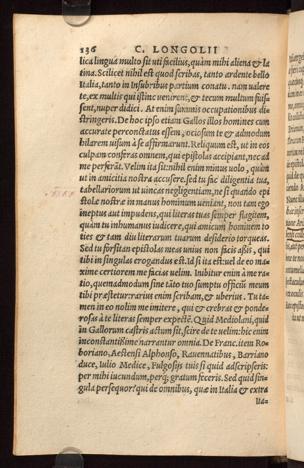 136 C. LONGOLII
lica lingua multo sit uti facilius, quàm mihi aliena & la
tina. Scilicet nihil est quod scribas, tanto ardente bello
Italia, tanto in Insubribus partium conatu. nam valere
te, ex multis qui istinc venirent, & tecum multum fuis
sent, nuper didici. At enim summis occupationibus di
stringeris. De hoc ipso etiam Gallos illos homines cum
accurate percontatus essem, ociosum te & admodum
hilarem uisum à se affirmarunt. Reliquum est, ut in eos
culpam conferas omnem, qui epistolas accipiant, nec ad
me perferant. Velim ita sit: nihil enim minus uolo, quàm
ut in amicitia nostra accuser. sed tu fac diligentia tua,
tabellariorum ut uincas negligentiam, ne si quando epi
stolæ nostræ in manus hominum ueniant, non tam ego
ineptus aut impudens, qui literas tuas semper flagitem,
quàm tu inhumanus iudicere, qui amicum hominem to
ties & tam diu literarum tuarum desiderio torqueas.
Sed tu forsitan epistolæ meas unius non facis assis, qui
tibi in singulas erogandus est. Id si ita est: uel de eo ma
xime certiorem me facias uelim. Iubitur enim à me ra
tio, quemadmodum sine tuo sumptu officiũ meum
tibi præstetur. rarius enim scribam, & uberius. Tu ta-
men in eo nolim me imitere, qui & crebras & ponde-
rosas à te literas semper expecto. Quid Mediolani, quid
in Gallorum castris actum sit, scire de te uelim: hic enim
inconstantißime narrantur omnia. De Franc. item Ro
boriano. Aestensi Alphonso, Rauennatibus, Barriano
duce, Iulio Medice, Fulgosijs tuis si quid adscripseris:
per mihi iucundum, perq; gratum feceris. Sed quid sin-
gula persequor? qui de omnibus, quæ in Italia & extra
Ita-